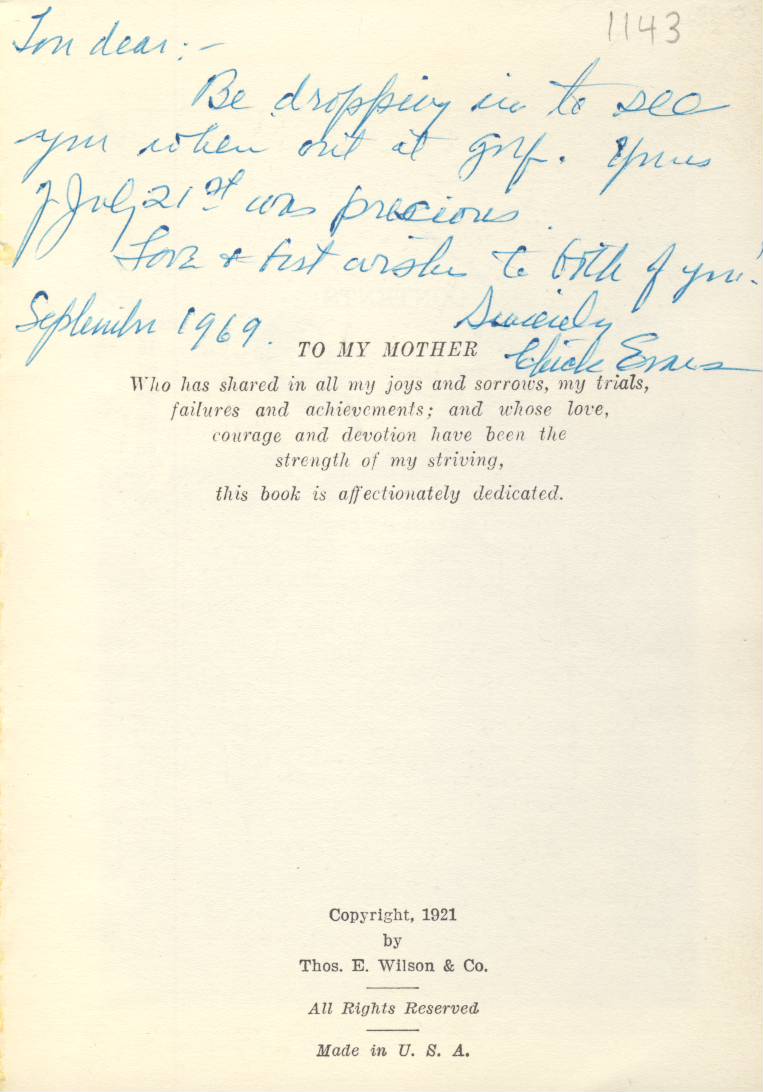 1143
dear:-
Be dropping in to see
you when out at golf. Yours
of July 21st was precious.
Love & best wishes to both of you!
Sincerely
September 1969.
Chick Evans
TO MY MOTHER
Who has shared in all my joys and sorrows, my trials,
failures and achievements; and whose love,
courage and devotion have been the
strength of my striving,
this book is affectionately dedicated.
Copyright, 1921
by
Thos. E. Wilson & Co.
All Rights Reserved
Made in U. S. A.